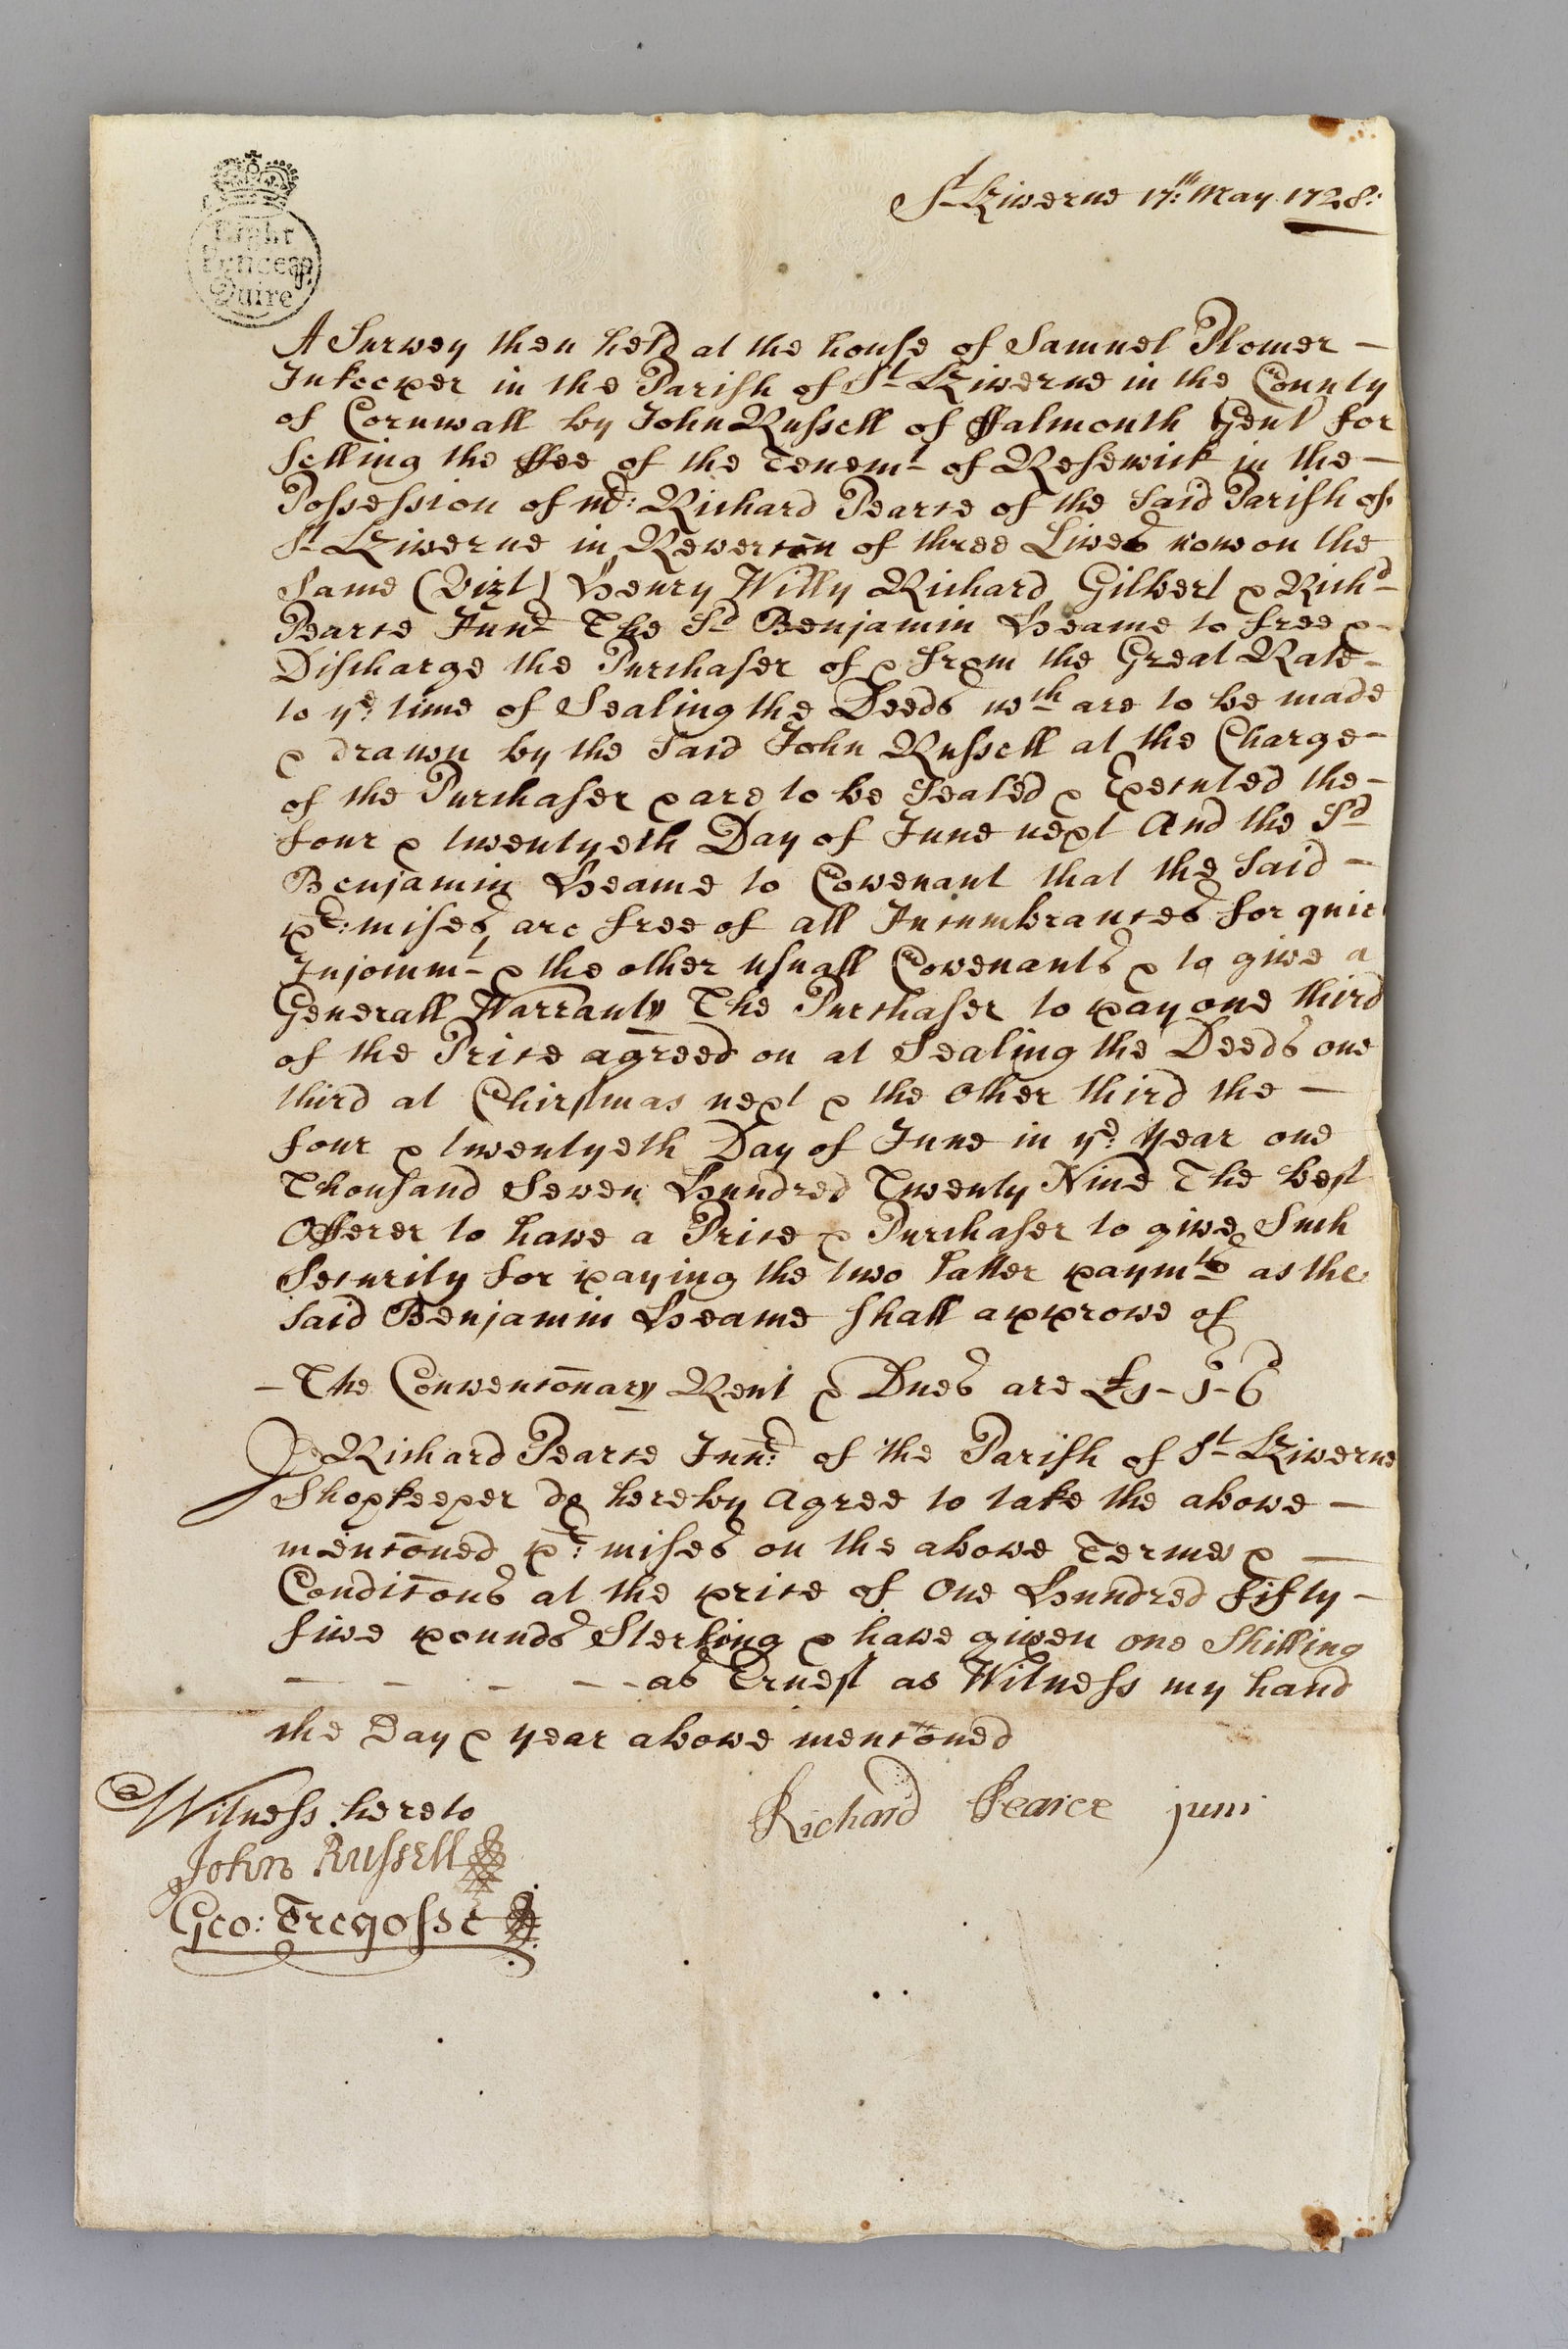 St. Kiverne 17:th May 1728:
Eight
Pence ap
Quire
A Survey then held at the house of Samuel Plomer —
Inkeeper in the Parish of St Kiverne in the County
of Cornwall by John Russell of ffalmouth Gent for
Selling the ffee of the Tenemt of Rosewick in the —
Possession of Mr: Richard Pearce of the said Parish of
St Kiverne in Revercōn of three Lives now on the
Same (Vizt) Henry Willy Richard Gilbert & Richd
Pearce Junr The Sd Benjamin Heame to free &
Discharge the Purchaser of & from the Great Rate —
to ye: time of Sealing the Deeds wch are to be made
& drawn by the said John Russell at the Charge —
of the Purchaser & are to be Sealed & Executed the —
four & twentyeth Day of June next And the Sd
Benjamin Heame to Covenant that the Said —
pr:mises are free of all Incumbrances for quiet
Injoymt & the other usuall Covenants & to give a
Generall Warranty The Purchaser to pay one third
of the Price agreed on at Sealing the Deeds one
third at Chirstmas next & the Other third the —
four & twentyeth Day of June in ye: Year one
Thousand Seven Hundred Twenty Nine The best
Offerer to have a Price & Purchaser to give Such
Security for paying the two latter paymts as the
said Benjamin Heame shall approve of
— The Convencōnary Rent & Dues are £1-1-6
I Richard Pearce Junr: of the Parish of St Kiverne
Shopkeeper do hereby Agree to take the above —
mencōned pr:mises on the above Termes & —
Condicōns at the price of One Hundred fifty —
five pounds Sterling & have given one Shilling
— — — — - as Ernest as Witness my hand
the Day & year above mencōned
Witness hereto
Richard Pearce junr
John Russell
Geo: Tregosse